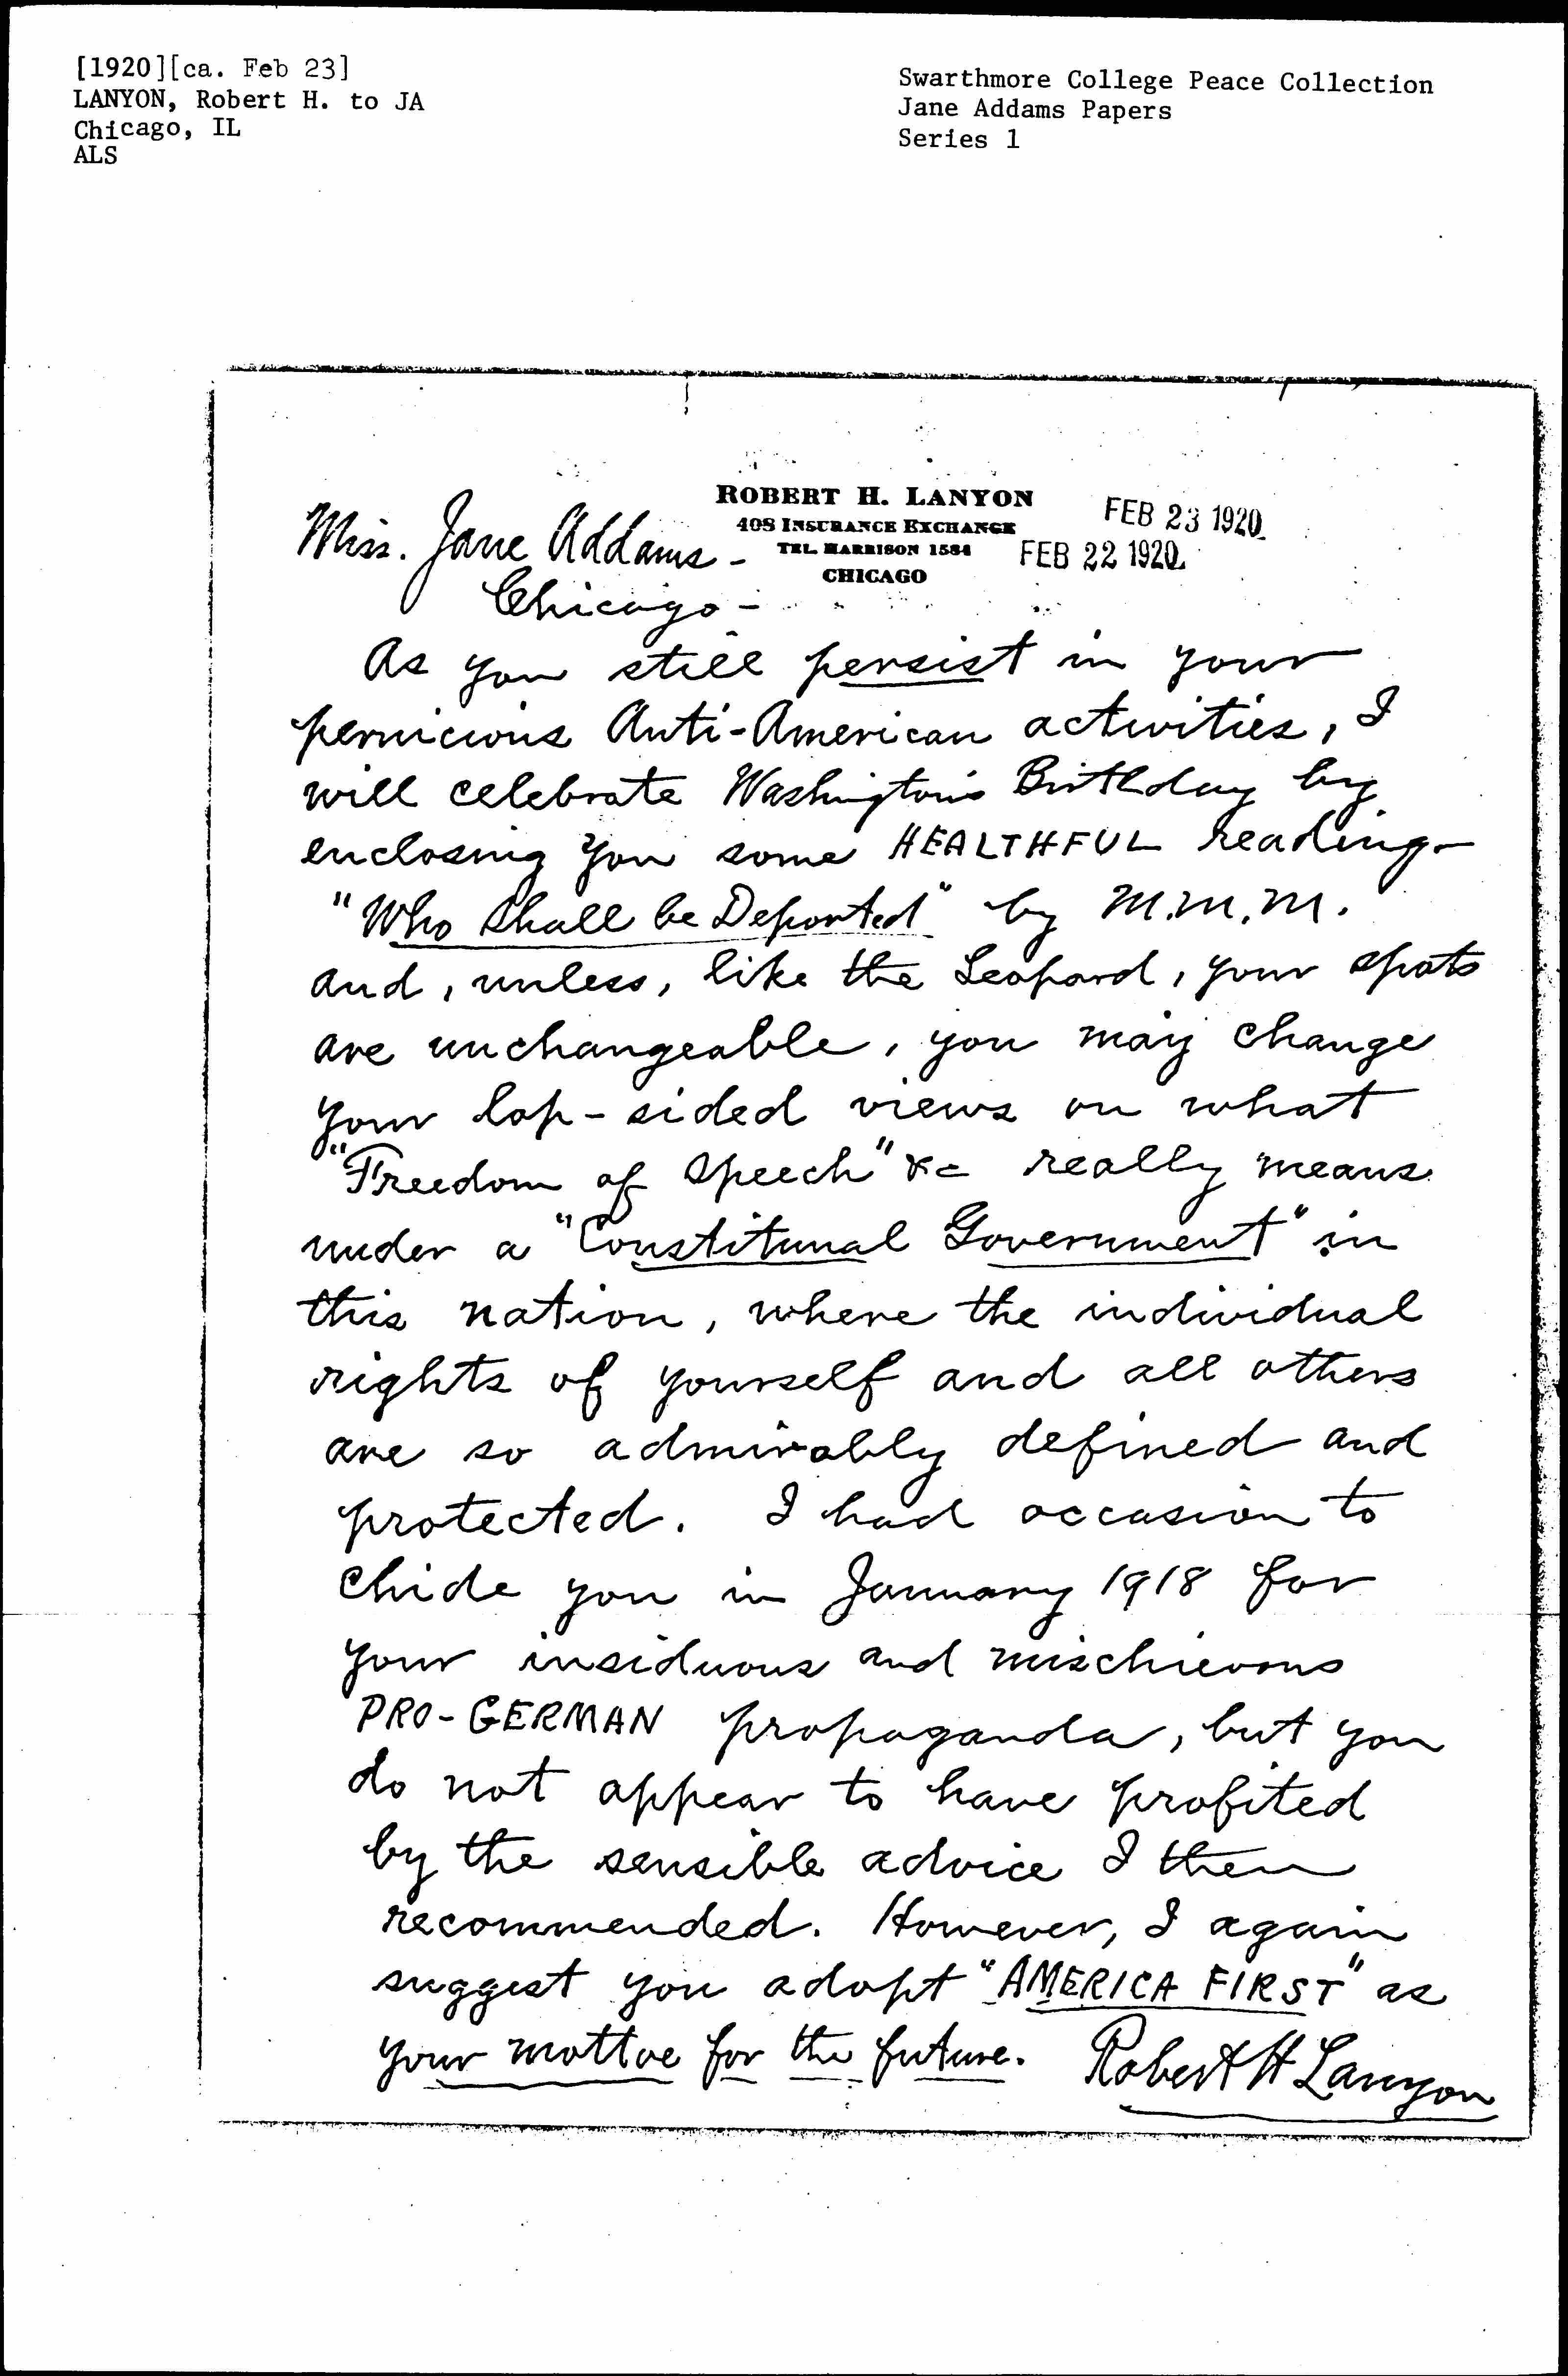 [1920][ca. Feb 23]
LANYON, Robert H. to JA
Chicago, IL
ALS
Swarthmore College Peace Collection
Jane Addams Papers
Series 1
ROBERT H. LANYON
408 INSURANCE EXCHANGE
TEL. HARRISON 1584
CHICAGO
FEB 23 1920
FEB 22 1920
Miss. Jane Addams -
Chicago -
As you still persist in your
pernicious Anti-American activities, I
will celebrate Washington's Birthday by
enclosing you some HEALTHFUL reading -
"Who Shall be Deported" by M.M.M.
and, unless, like the Leopard, your spots
are unchangeable, you may change
your lop-sided views on what
"Freedom of Speech" &c really means
under a "Constitunal Government" in
this nation, where the individual
rights of yourself and all others
are so admirably defined and
protected. I had occasion to
chide you in January 1918 for
your insiduous and mischievous
PRO-GERMAN propaganda, but you
do not appear to have profited
by the sensible advice I then
recommended. However, I again
suggest you adopt "AMERICA FIRST" as
your mottoe for the future. Robert H Lanyon